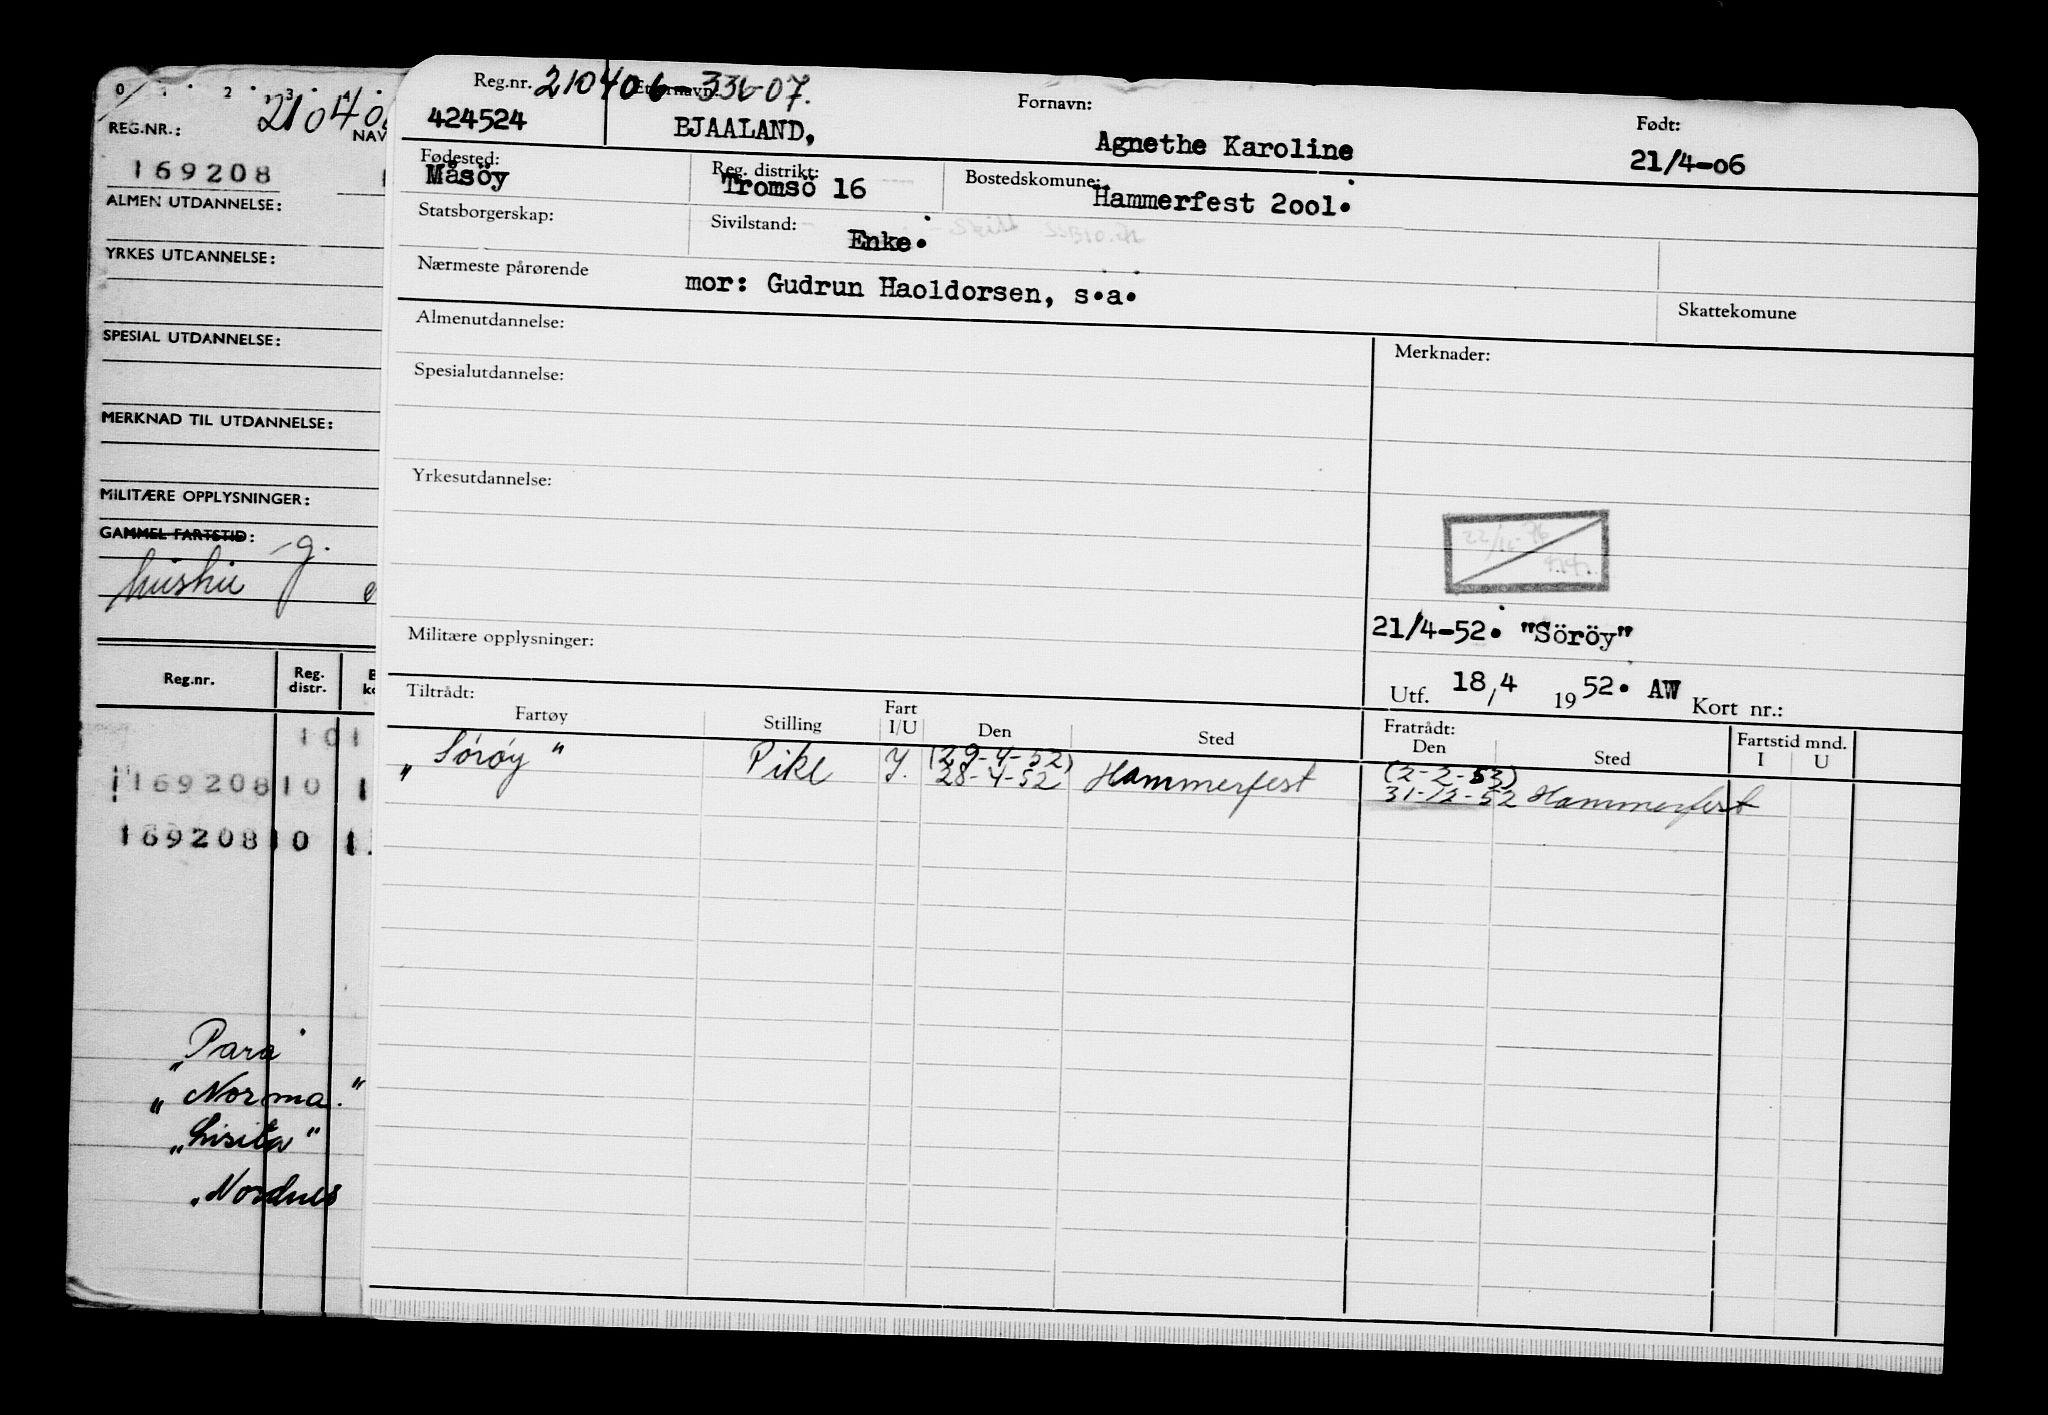 0 1 2 3 4
REG.NR.:
21040
NAV
169208
ALMEN UTDANNELSE:
YRKES UTDANNELSE:
SPESIAL UTDANNELSE:
MERKNAD TIL UTDANNELSE:
MILITÆRE OPPLYSNINGER:
GAMMEL FARTSTID:
Reg.nr. Reg. distr.
101
169208 10 1
169208 10 1
"Para"
"Norma."
"Lisita"
"Nordnes
Reg.nr. 210406-336-07.
424524
Etternavn:
BJAALAND,
Fornavn:
Agnethe Karoline
Født:
21/4-06
Fødested:
Måsöy
Reg. distrikt:
Tromsö 16
Bostedskomune:
Hammerfest 2001.
Statsborgerskap:
Sivilstand:
Enke.
Nærmeste pårørende
mor: Gudrun Haoldorsen, s.a.
Skattekomune
Almenutdannelse:
Merknader:
Spesialutdannelse:
Yrkesutdannelse:
21/4-52. "Söröy"
Militære opplysninger:
Utf. 18,4 1952. AW Kort nr.:
Tiltrådt:
Fartøy Stilling Fart I/U Den Sted
Fratrådt:
Den Sted
Fartstid mnd.
I U
(29-4-52) (2-2-53)
"Söröy" Pike 28-4-52 Hammerfest 31-12-52 Hammerfest